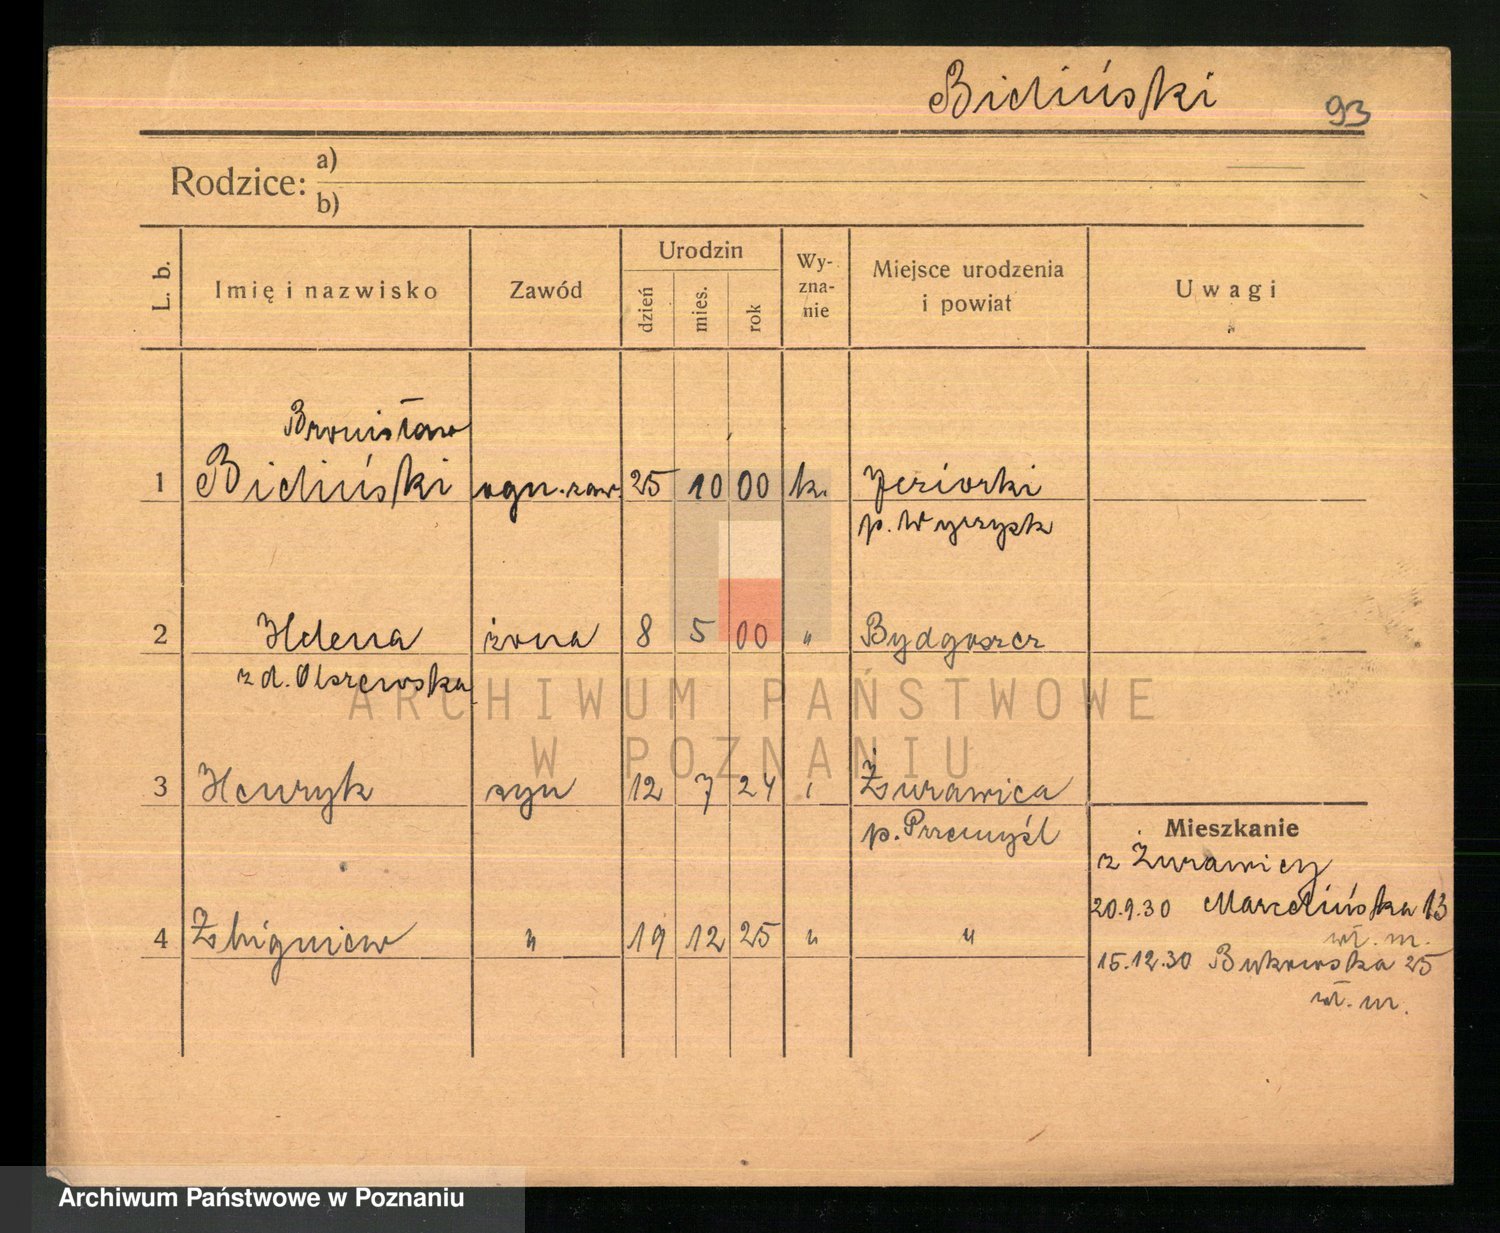 Bieliński 93
Rodzice: a)
b)
L. b. Imię i nazwisko Zawód Urodzin dzień mies. rok Wy-zna-nie Miejsce urodzenia i powiat Uwagi
Bronisław
1 Bieliński ogn. zaw. 25 10 00 k. Jeziorki
p. Wyrzysk
2 Helena żona 8 5 00 " Bydgoszcz
z d. Olszewska
ARCHIWUM PAŃSTWOWE
W POZNANIU
3 Henryk syn 12 7 24 " Żurawica
p. Przemyśl
Mieszkanie
z Żurawicy
20.9.30 Marcelińska 13
wł. m.
4 Zbigniew " 19 12 25 " "
15.12.30 Bukowska 25
wł. m.
Archiwum Państwowe w Poznaniu